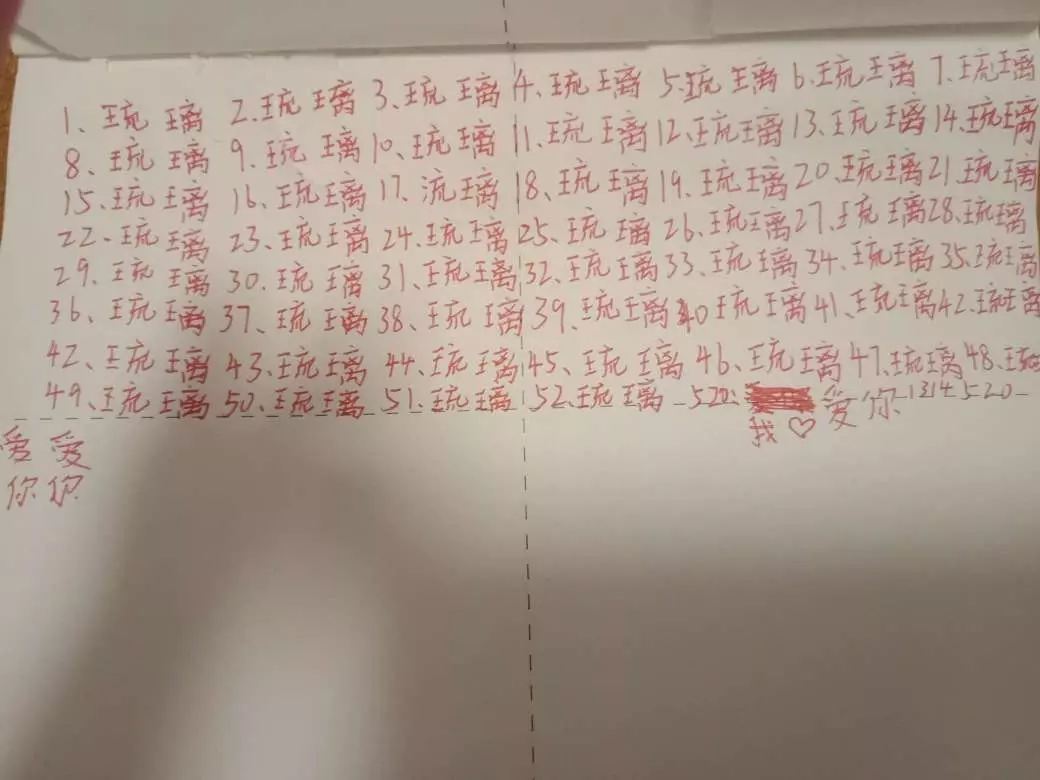 1、琉璃 2.琉璃 3、琉璃 4、琉璃 5.琉璃 6.琉璃 7、琉璃
8、琉璃 9、琉璃 10、琉璃 11、琉璃 12、琉璃 13、琉璃 14、琉璃
15、琉璃 16、琉璃 17、流璃 18、琉璃 19、琉璃 20、琉璃 21、琉璃
22、琉璃 23、琉璃 24、琉璃 25、琉璃 26、琉璃 27、琉璃 28、琉璃
29、琉璃 30、琉璃 31、琉璃 32、琉璃 33、琉璃 34、琉璃 35、琉璃
36、琉璃 37、琉璃 38、琉璃 39、琉璃 40 琉璃 41、琉璃 42、琉璃
42、琉璃 43、琉璃 44、琉璃 45、琉璃 46、琉璃 47、琉璃 48、琉
49、琉璃 50、琉璃 51、琉璃 52、琉璃 520: 爱你 1314520
我♡
爱爱
你你